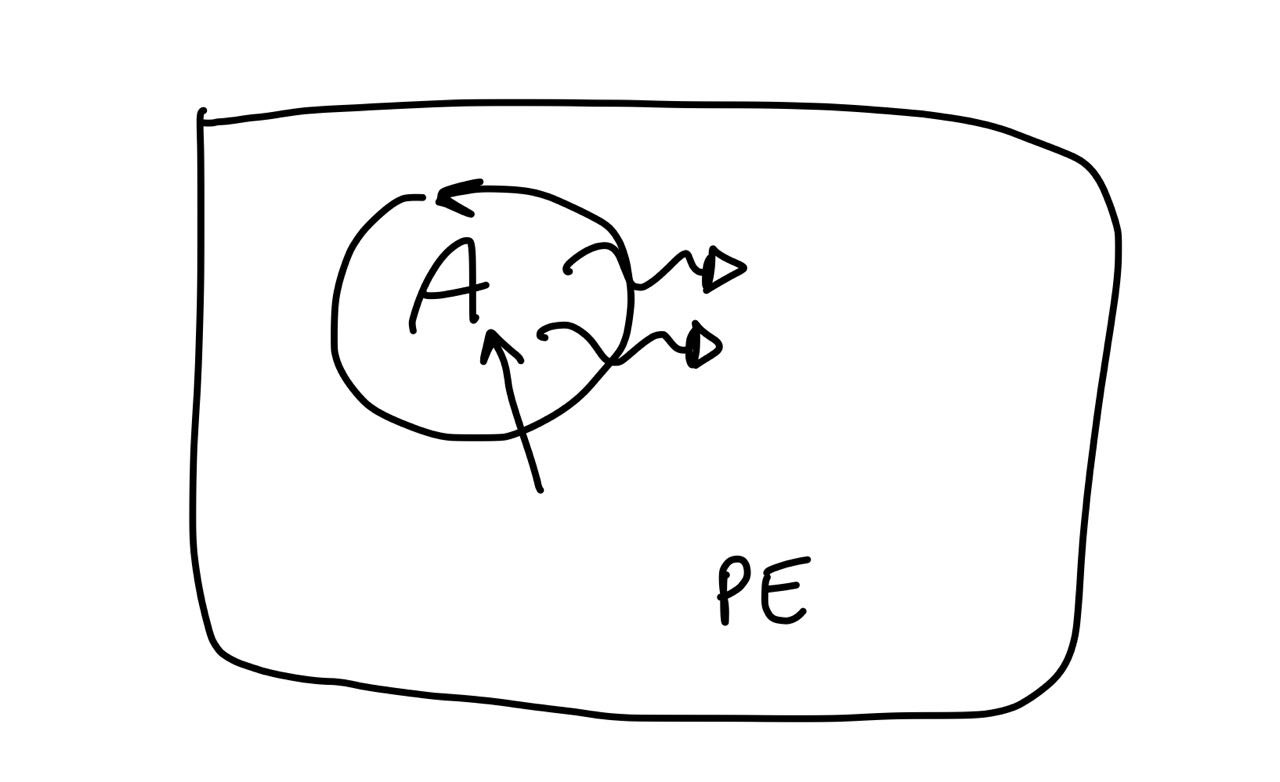 A
PE